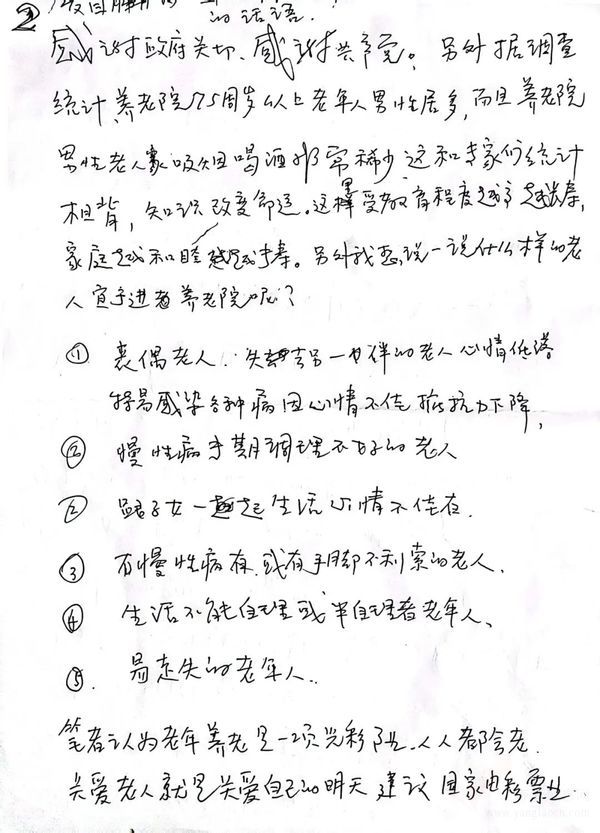 ②发自肺腑的
的话语.
感谢政府关切、感谢共产党。另外据调查
统计、养老院75周岁以上老年人男性居多,而且养老院
男性老人家吸烟喝酒非常稀少 这和专家们统计
相背,知识改变命运。这样受教育程度越高越长寿,
家庭越和睦越长寿。另外我想说一说什么样的老
人宜于进者养老院呢?
① 丧偶老人.失去另一半伴的老人心情低落
容易感染各种病因心情不佳抵抗力下降,
② 慢性病于期调理不好的老人
② 跟子女一起生活心情不佳在.
③ 有慢性病有.或有手脚不利索的老人.
④ 生活不能自理或半自理者老年人、
⑤. 易走失的老年人..
笔者认为老年养老是一项光彩 人人都会老.
关爱老人就是关爱自己的明天 建议国家由彩票业